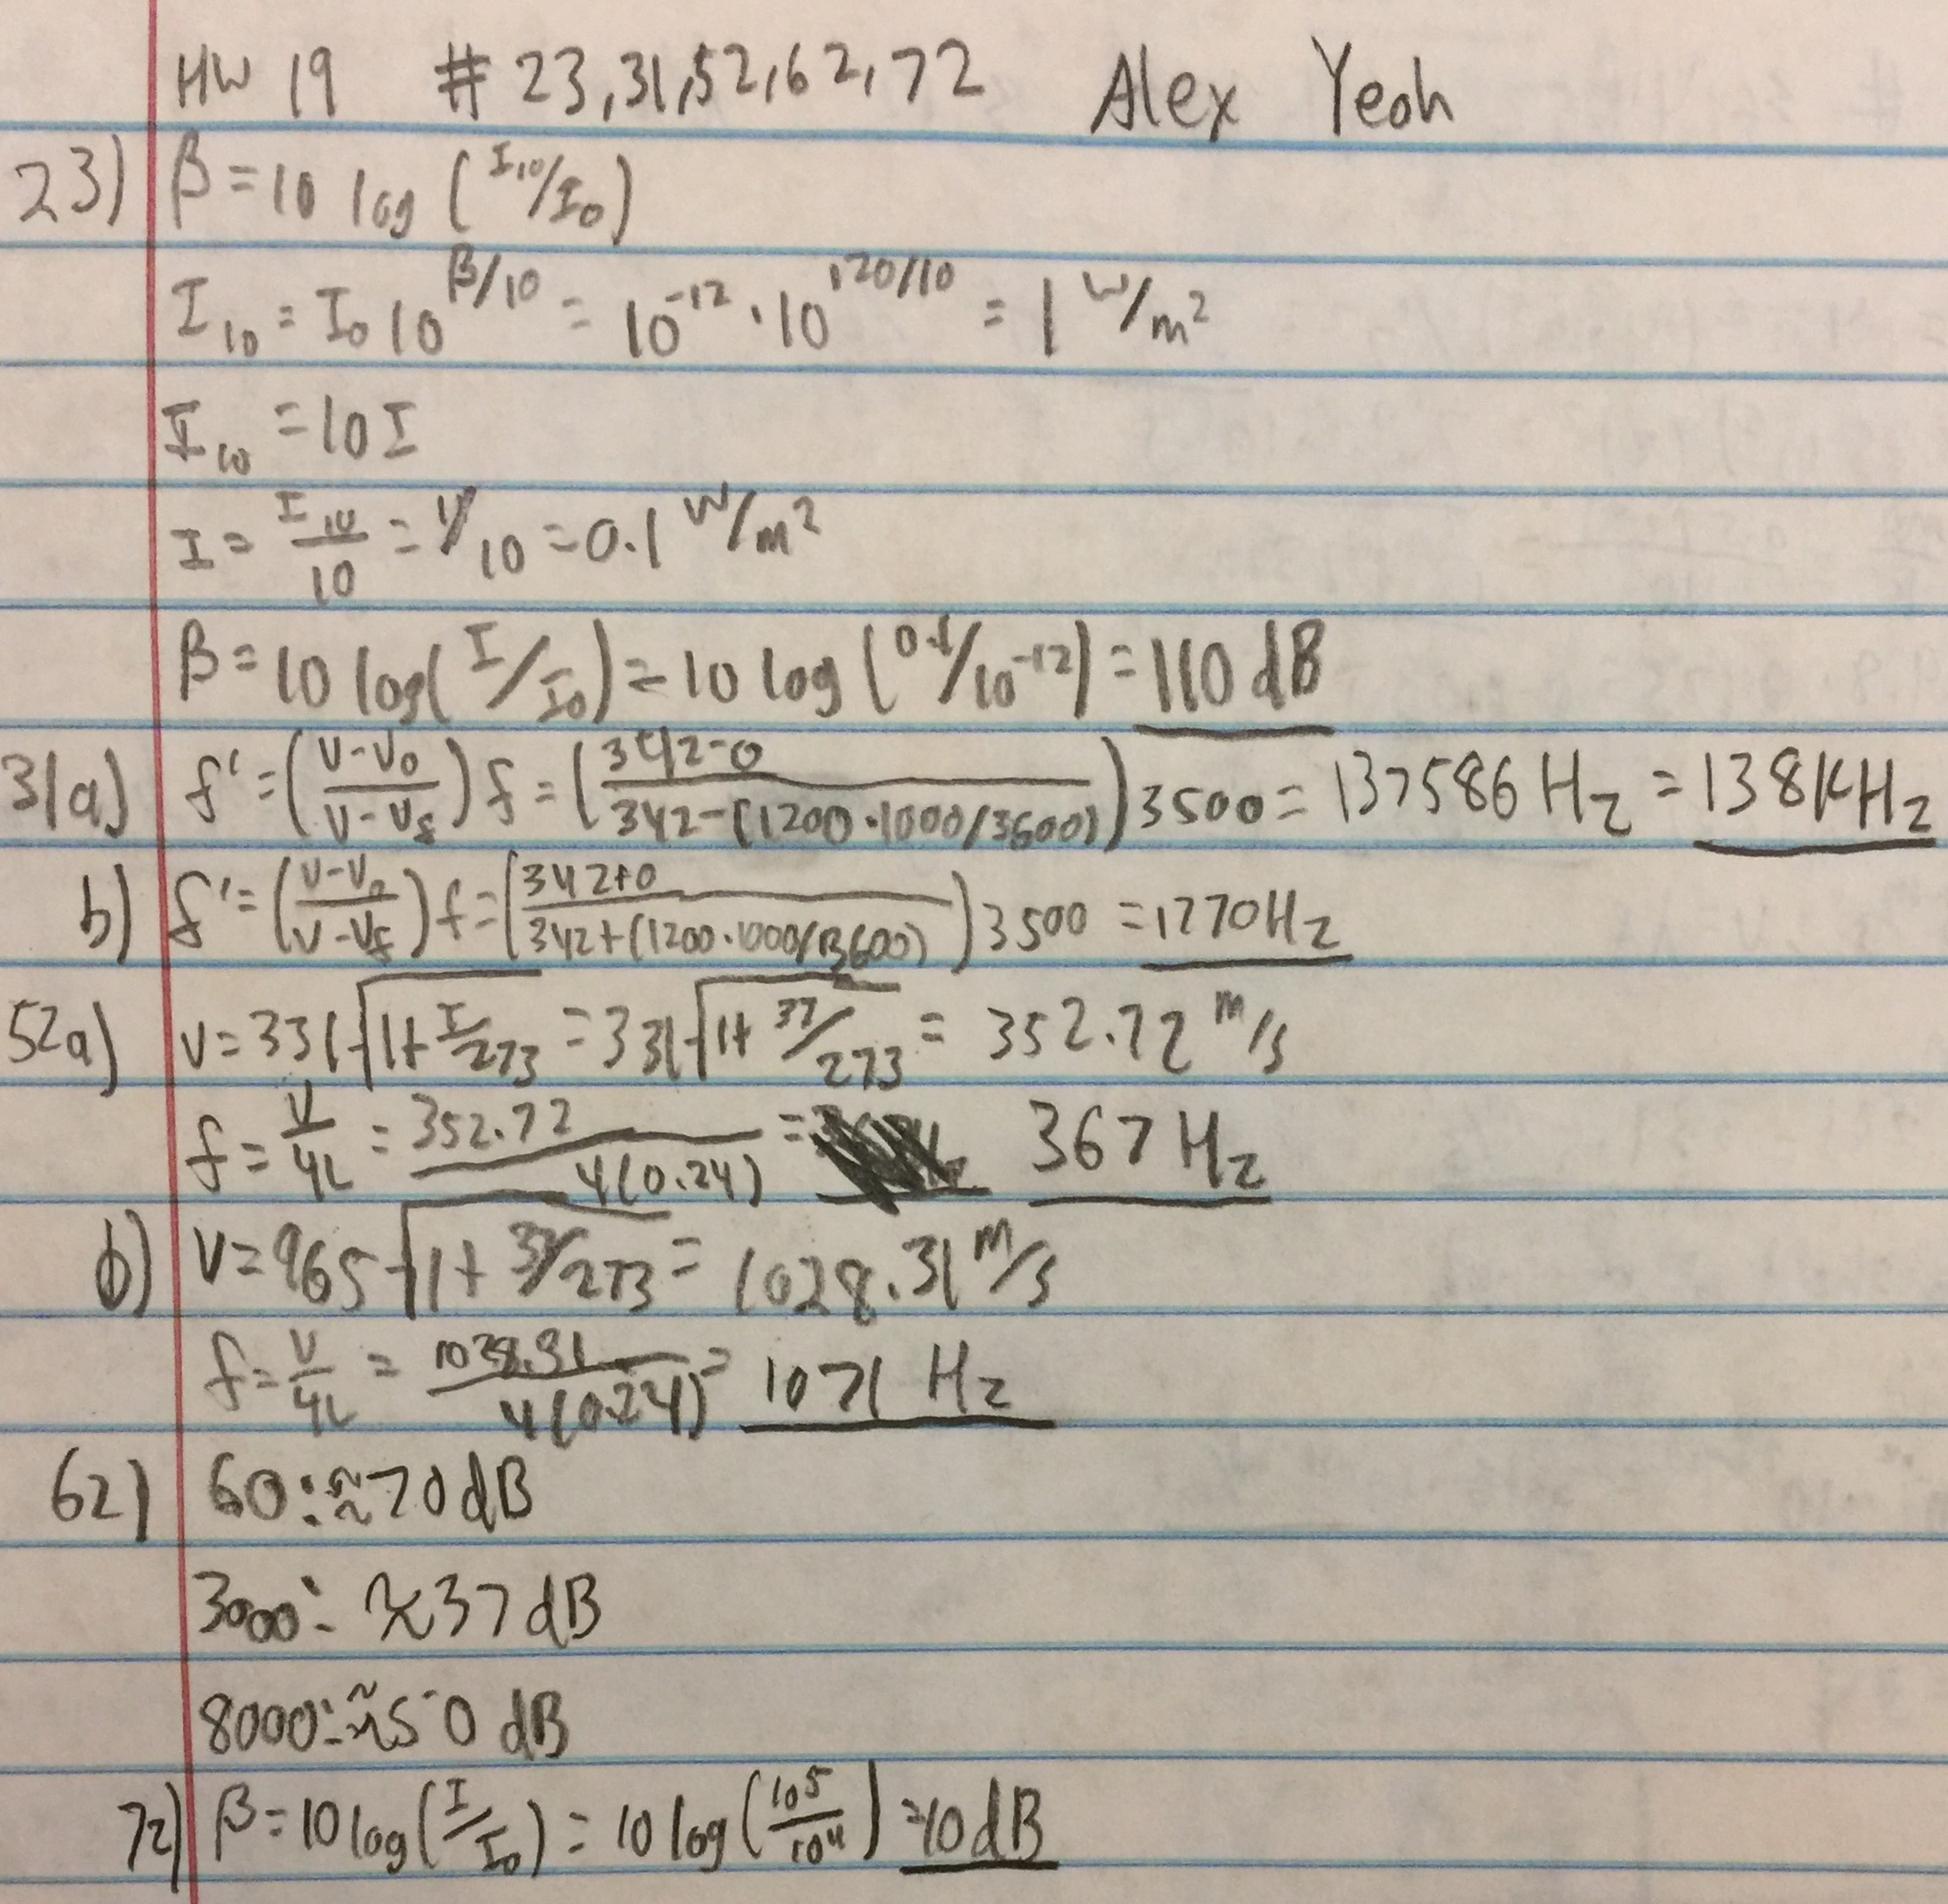 HW 19 # 23,31,52,62,72 Alex Yeoh
23) β = 10 log (I₁₀/I₀)
I₁₀ = I₀ 10^(β/10) = 10⁻¹² · 10^(120/10) = 1 W/m²
I₁₀ = 10I
I = I₁₀/10 = 1/10 = 0.1 W/m²
β = 10 log(I/I₀) = 10 log (0.1/10⁻¹²) = 110 dB
31a) f' = ((v-v₀)/(v-vₛ)) f = ((342-0)/(342-(1200·1000/3600))) 3500 = 137586 Hz = 138KHz
b) f' = ((v-v₀)/(v-vₛ)) f = ((342+0)/(342+(1200·1000/3600))) 3500 = 1770Hz
52a) v = 331√(1+T/273) = 331√(1+37/273) = 352.72 m/s
f = v/4L = 352.72/4(0.24) = 367 Hz
b) v = 965√(1+37/273) = 1028.31 m/s
f = v/4L = 1028.31/4(0.24) = 1071 Hz
62) 60: ≈70dB
3000: ≈37dB
8000: ≈50 dB
72) β = 10log(I/I₀) = 10 log(10⁵/10⁴) = 10dB